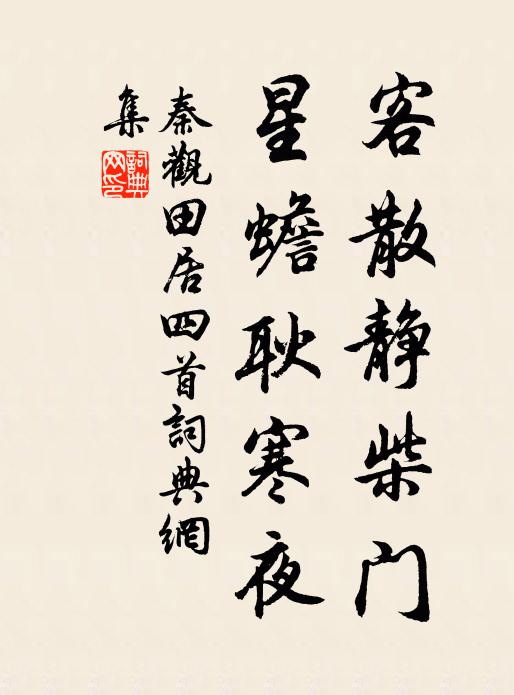 客散静柴门
星蟾耿寒夜
秦觀田居四首詞典網
集
詞典
网印